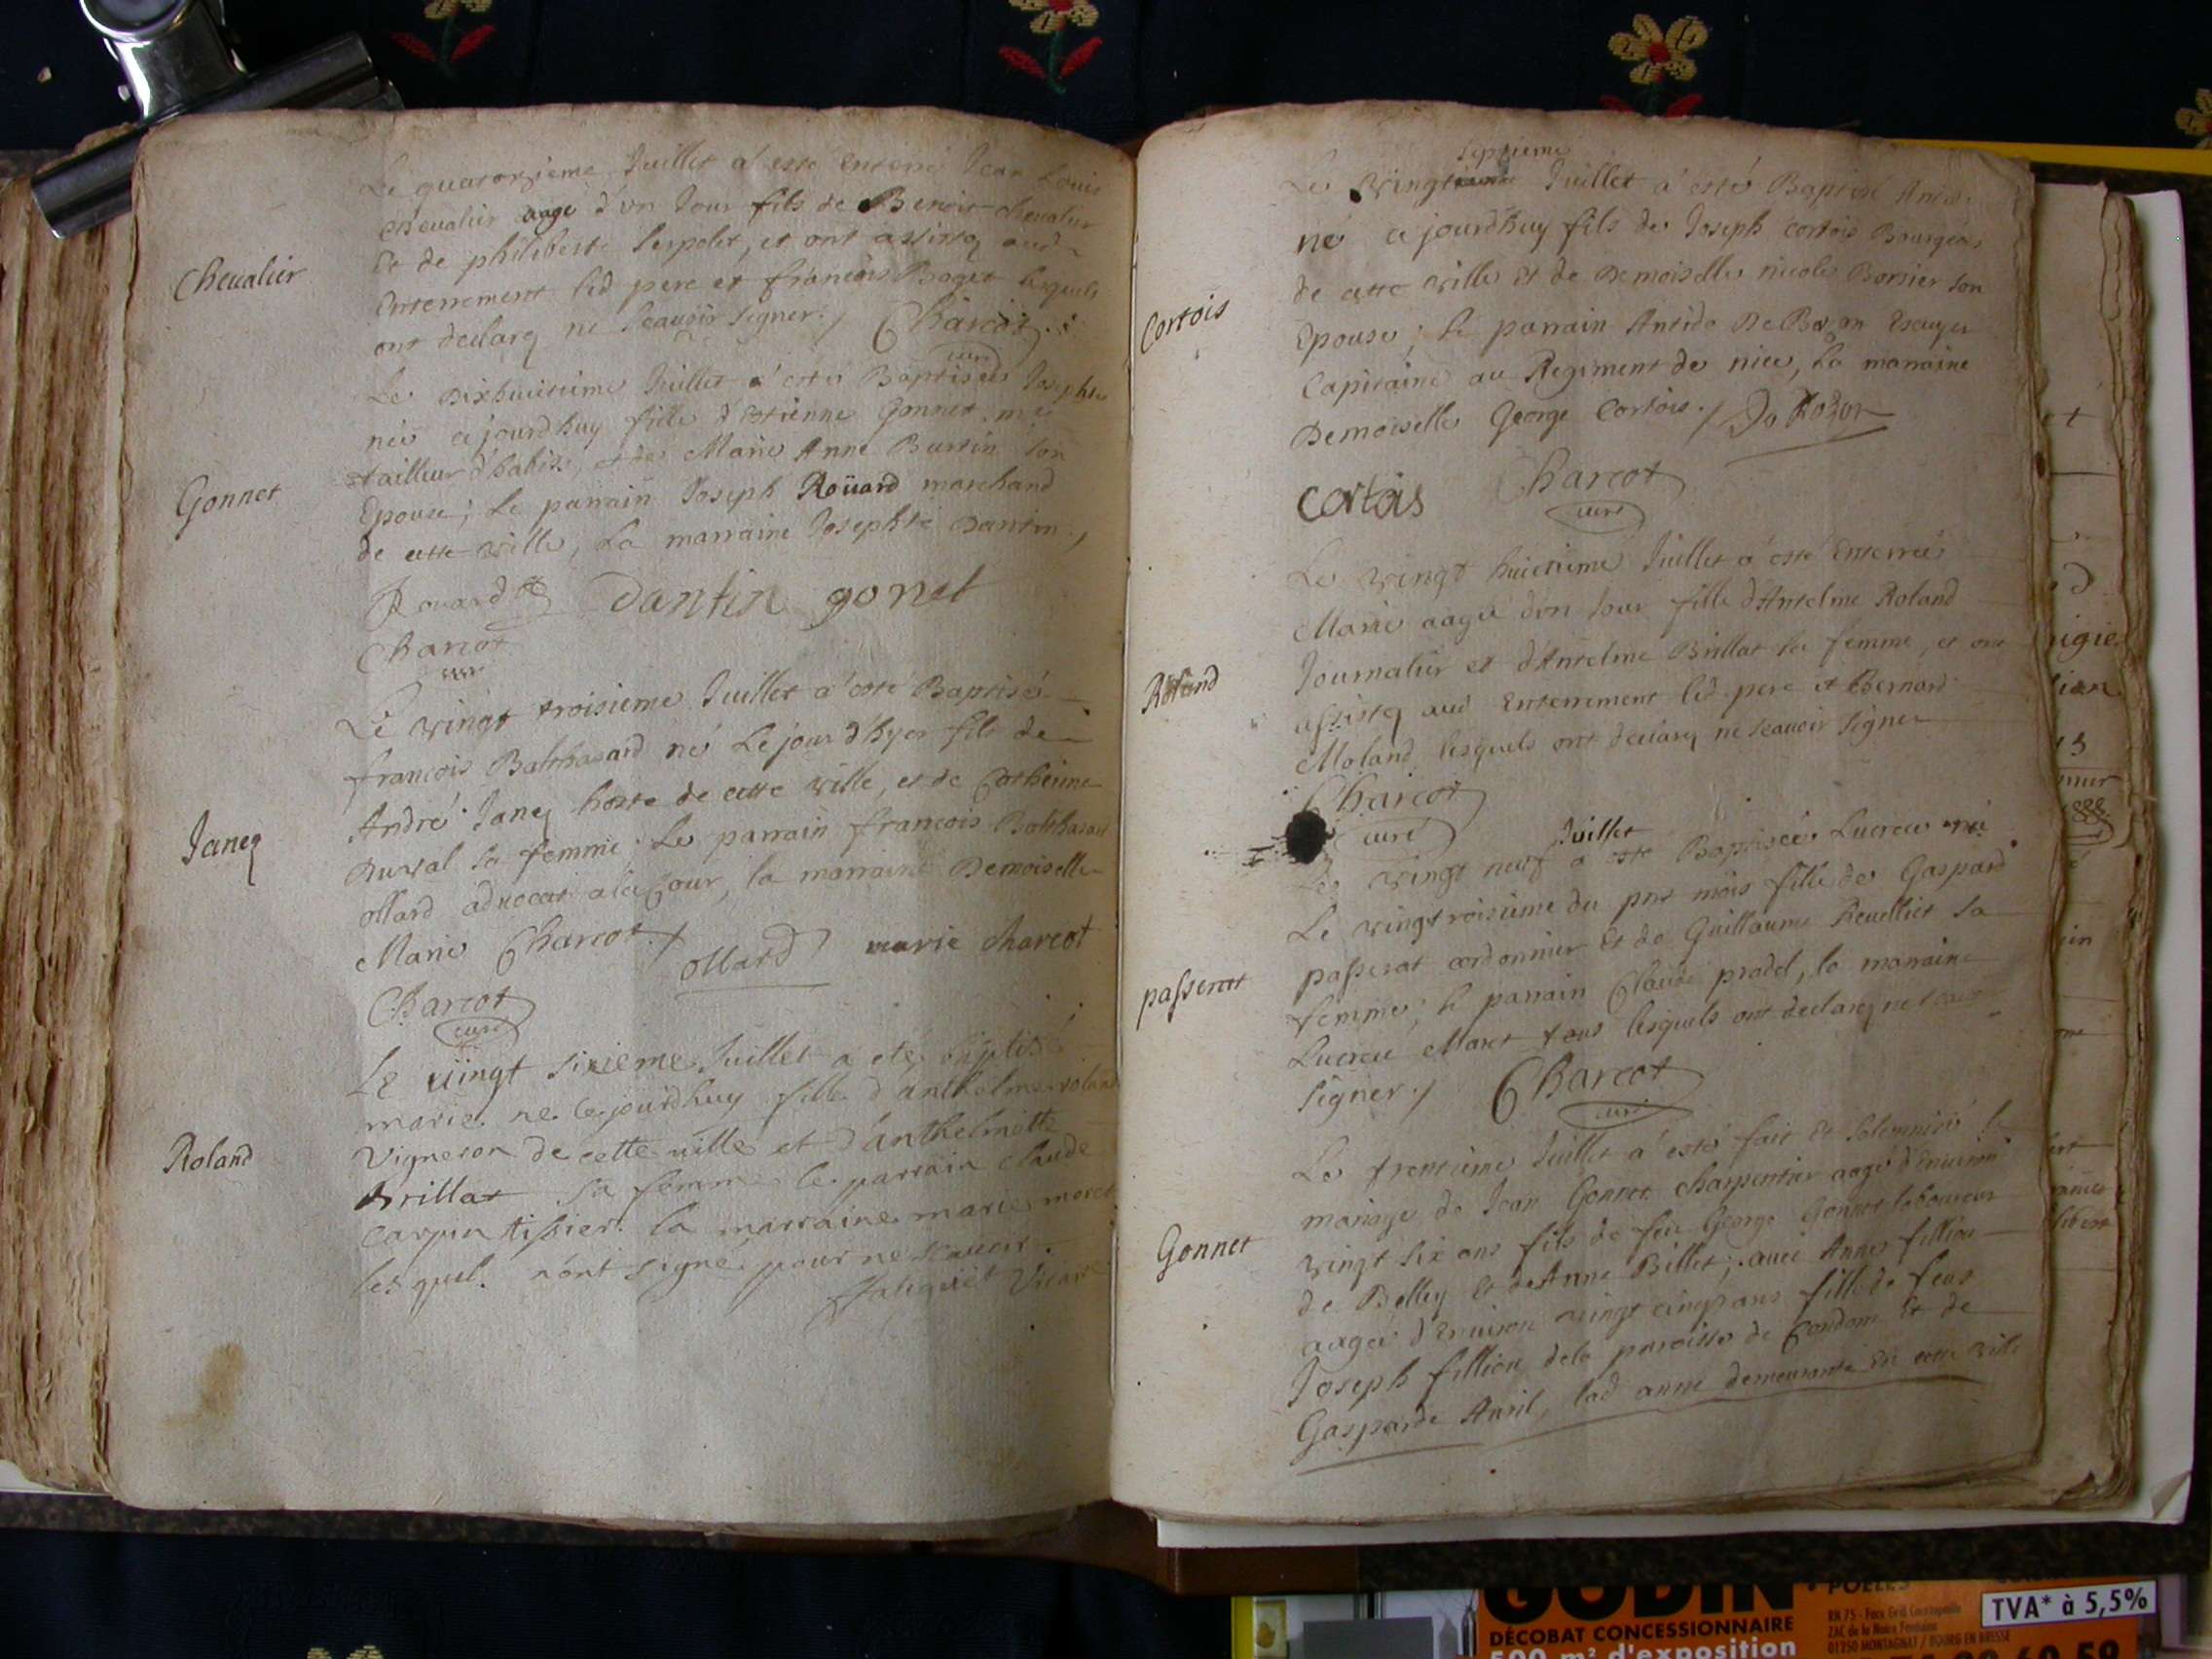 Le quatorzieme Juillet a esté Enterré Jean Louis
Chevalier aagé d'un Jour fils de Benoit chevalier
Et de philiberte Serpolet, et ont assistez aud
Enterrement led pere et francois Boget lesquels
ont declarez ne scauoir signer ./ Charcot
curé
Cheualier
Le Dixhuitieme Juillet a esté Baptisée Josephte
née ajourdhuy fille d'Estienne Gonnet me
tailleur d'habits, et de Marie Anne Burtin son
Epouse; Le parrain Joseph Roüard marchand
de cette ville, La marraine Josephte Dantin ./
Gonnet
Rouard Dantin gonet
Charcot
curé
Le vingt troisieme Juillet a esté Baptisé
francois Balthasard né Le jour d'hyer fils de
André Janez hoste de cette ville, et de Catherine
Duval sa femme Le parrain francois Balthasard
ollard aduocat a la Cour, la marraine Demoiselle
Marie Charcot ./
Janez
ollard marie charcot
Charcot
curé
Le uingt sixieme Juillet a eté baptisé
marie ne ce jourdhuy fille d'anthelme roland
Vigneron de cette uille et d'anthelmette
Brillat sa femme le parrain claude
Carpin tissier la marraine marie moret
lesquel n'ont signé pour ne scauoir.
Roland
Vicaire
septieme
Le vingt Juillet a esté Baptisé Antide
né ajourdhuy fils de Joseph Cortois Bourgeois
de cette ville Et de Demoiselle nicole Bonnier son
Epouse; Le parrain Antide De Rozon Escuyer
Capitaine au Regiment de nice, La marraine
Demoiselle George Cortois ./ De Rozon
Cortois
cortois Charcot
curé
Le vingt huitieme Juillet a esté Enterrée
Marie aagée d'un Jour fille d'Antelme Roland
Journalier et d'Antelme Brillat sa femme, et ont
assistez aud Enterrement led pere et Bernard
Moland lesquels ont declarez ne scauoir signer
Roland
Charcot
curé
Juillet
Le vingt neuf a esté Baptisée Lucrece née
Le vingtroisieme du pnt mois fille de Gaspard
passerat cordonnier Et de Guillaume Reuelliet sa
femme; le parrain Claude pradel, la marraine
Lucrece Maret tous lesquels ont declarez ne scauoir
signer ./ Charcot
curé
passerat
Le trentieme Juillet a esté fait Et solemnisé le
mariage de Jean Gonnet charpentier aagé d'Enuiron
vingt six ans fils de feu George Gonnet laboureur
de Belley Et de Anne Billet; auec Anne fillion
aagée d'Enuiron vingt cinq ans fille de feus
Joseph fillion dela paroisse de Condom Et de
Gasparde Auril, lad anne demeurante En cette ville
Gonnet
GODIN
POELES
DÉCOBAT CONCESSIONNAIRE
500 m² d'exposition
01250 MONTAGNAT / BOURG EN BRESSE
TVA* à 5,5%